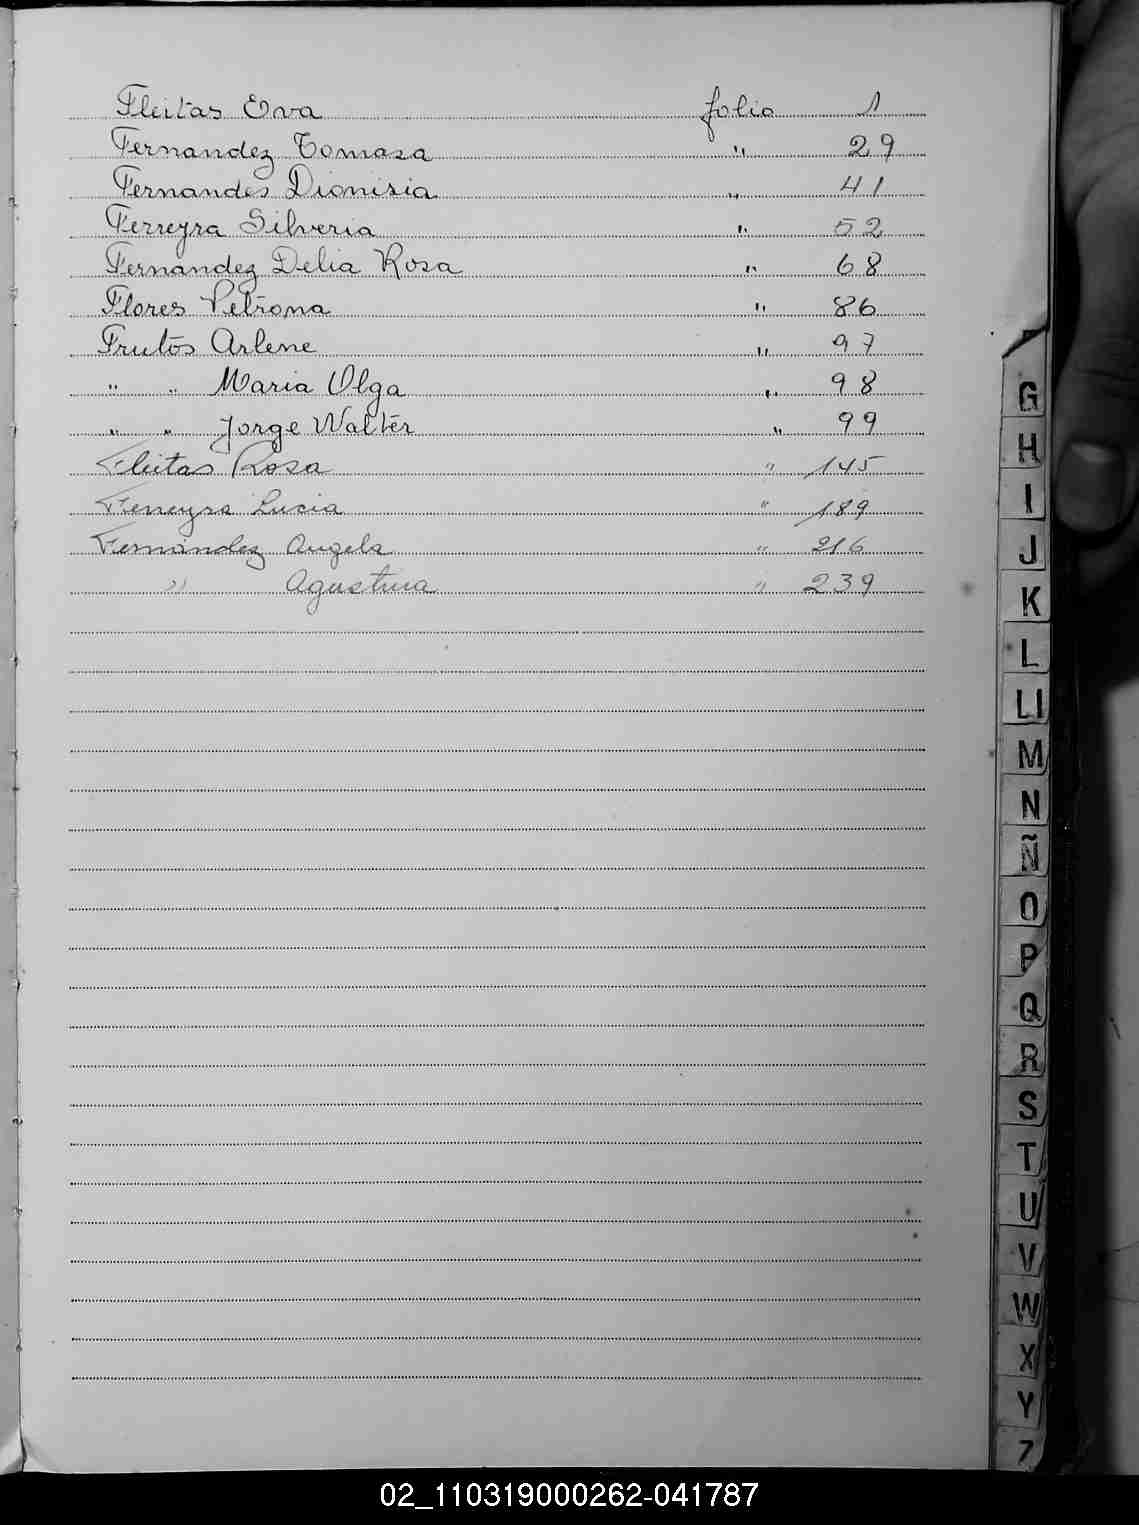 Fleitas Eva folio 1
Fernandez Tomasa " 29
Fernandes Dionisia " 41
Ferreyra Silveria " 52
Fernandez Delia Rosa " 68
Flores Petrona " 86
Frutos Arlene " 97
" " Maria Olga " 98
" " Jorge Walter " 99
Fleitas Rosa " 145
Ferreyra Lucia " 189
Fernández Angela " 216
" Agustina " 239
G
H
I
J
K
L
Ll
M
N
Ñ
O
P
Q
R
S
T
U
V
W
X
Y
Z
02_110319000262-041787